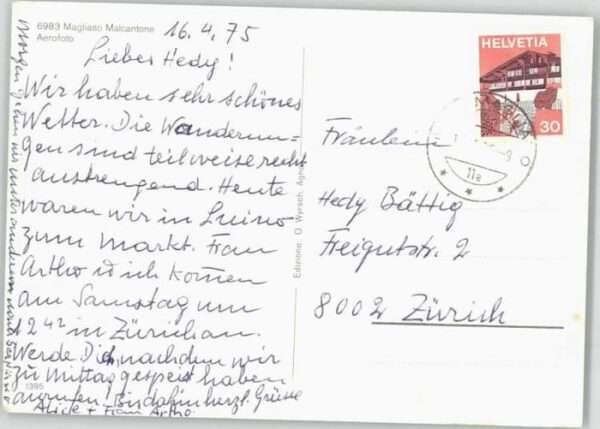 6983 Magliaso Malcantone
Aerofoto
16.4.75
Lieber Hedy!
Wir haben sehr schönes
Wetter. Die Wanderun=
gen sind teilweise recht
anstrengend. Heute
waren wir in Luino
zum Markt. Frau
Artho u ich kommen
am Samstag um
12 42 in Zürich an.
Werde Dich nachdem wir
zu Mittag gespeist haben
anrufen. Bis dahin herzl. Grüsse
Alice + Frau Artho.
Morgen gehen wir
1395
Edizione: O. Wyrsch, Agno
HELVETIA
30
11a
Fräulein
Hedy Bättig
Freigutstr. 2
8002 Zürich